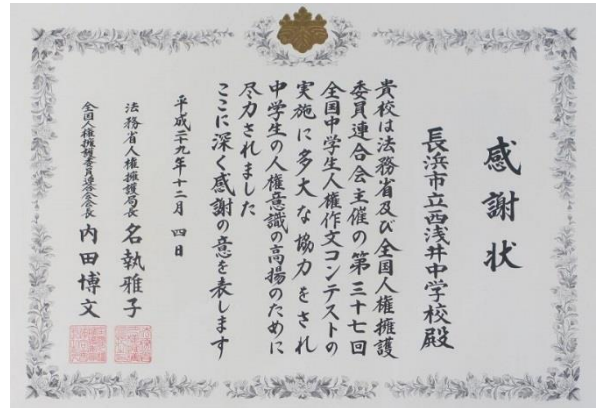 感謝状
長浜市立西浅井中学校殿
貴校は法務省及び全国人権擁護
委員連合会主催の第三十七回
全国中学生人権作文コンテストの
実施に多大な協力をされ
中学生の人権意識の高揚のために
尽力されました
ここに深く感謝の意を表します
平成二十九年十二月四日
法務省人権擁護局長 名執雅子
全国人権擁護委員連合会長 内田博文